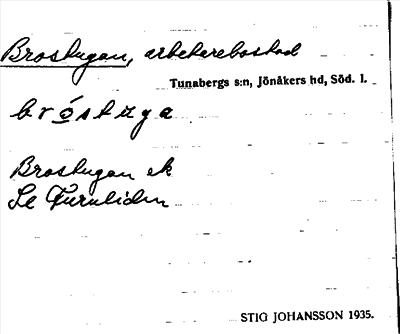 Brostugan, arbetarebostad
Tunabergs s:n, Jönåkers hd, Söd. l.
bróstuga
Brostugan ek
Se Furuliden
STIG JOHANSSON 1935.